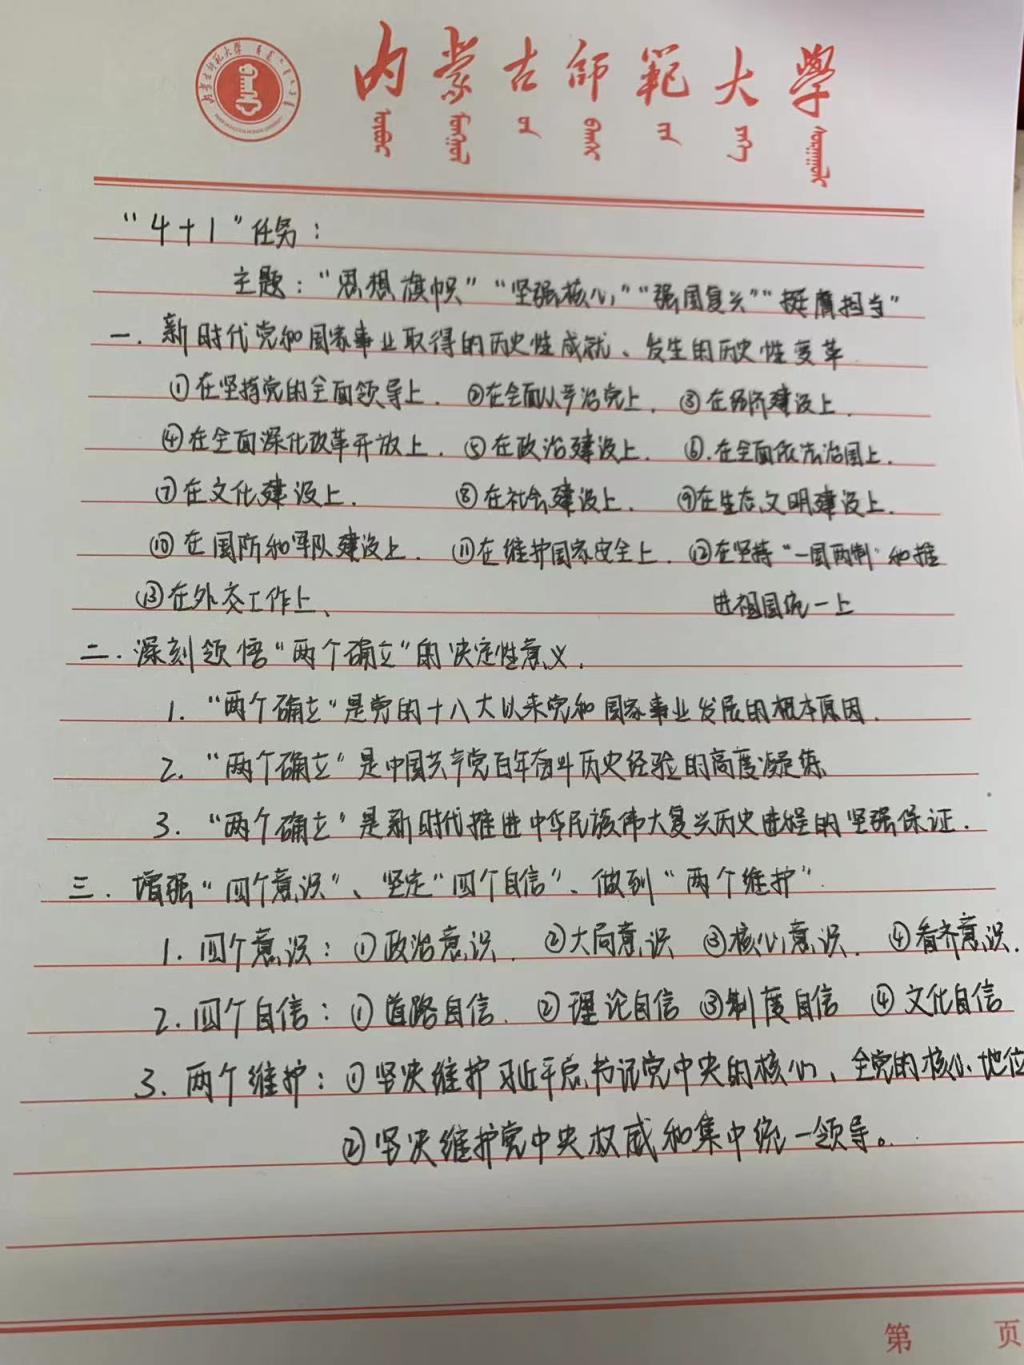 内蒙古師範大學
“4+1”任务：
主题：“思想旗帜”“坚强核心”“强国复兴”“挺膺担当”
一．新时代党和国家事业取得的历史性成就、发生的历史性变革
①在坚持党的全面领导上．②在全面从严治党上．③在经济建设上．
④在全面深化改革开放上．⑤在政治建设上．⑥．在全面依法治国上．
⑦在文化建设上．⑧在社会建设上．⑨在生态文明建设上．
⑩在国防和军队建设上．⑪在维护国家安全上．⑫在坚持“一国两制”和推
⑬在外交工作上、进祖国统一上
二．深刻领悟“两个确立”的决定性意义．
1．“两个确立”是党的十八大以来党和国家事业发展的根本原因．
2．“两个确立”是中国共产党百年奋斗历史经验的高度凝练
3．“两个确立”是新时代推进中华民族伟大复兴历史进程的坚强保证．
三．增强“四个意识”、坚定“四个自信”、做到“两个维护”
1．四个意识：①政治意识．②大局意识 ③核心意识．④看齐意识．
2．四个自信：①道路自信．②理论自信 ③制度自信 ④文化自信
3．两个维护：①坚决维护习近平总书记党中央的核心、全党的核心地位
②坚决维护党中央权威和集中统一领导。
第 页